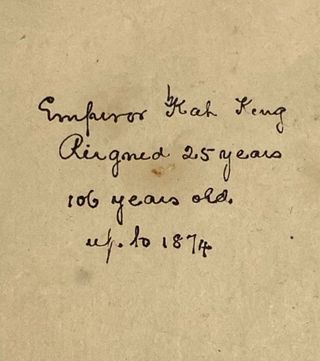 Emperor Kah King
Reigned 25 years
106 years old.
up. to 1874